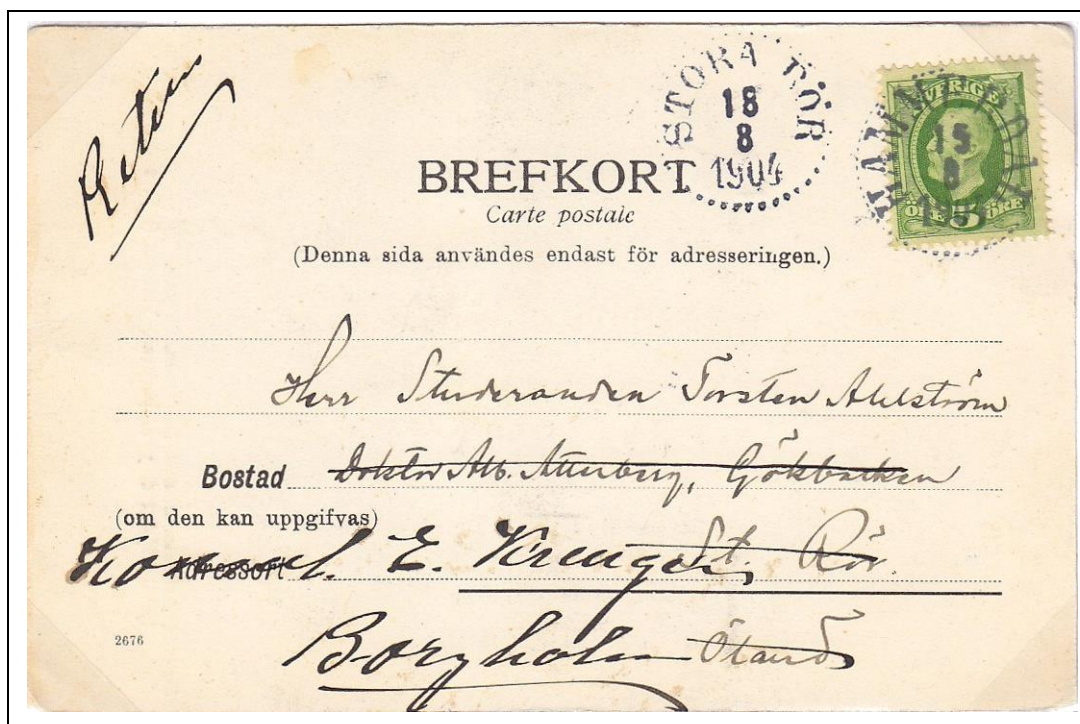 STORA RÖR
18
8
1904
SVERIGE
15
8
ÖRE 5 ÖRE
BREFKORT
Carte postale
(Denna sida användes endast för adresseringen.)
Herr Studeranden Torsten Ahlström
Bostad Doktor Alb. Atterberg, Gökbacken
(om den kan uppgifvas)
Adressort St. Rör.
E.
Borgholm Öland
2676